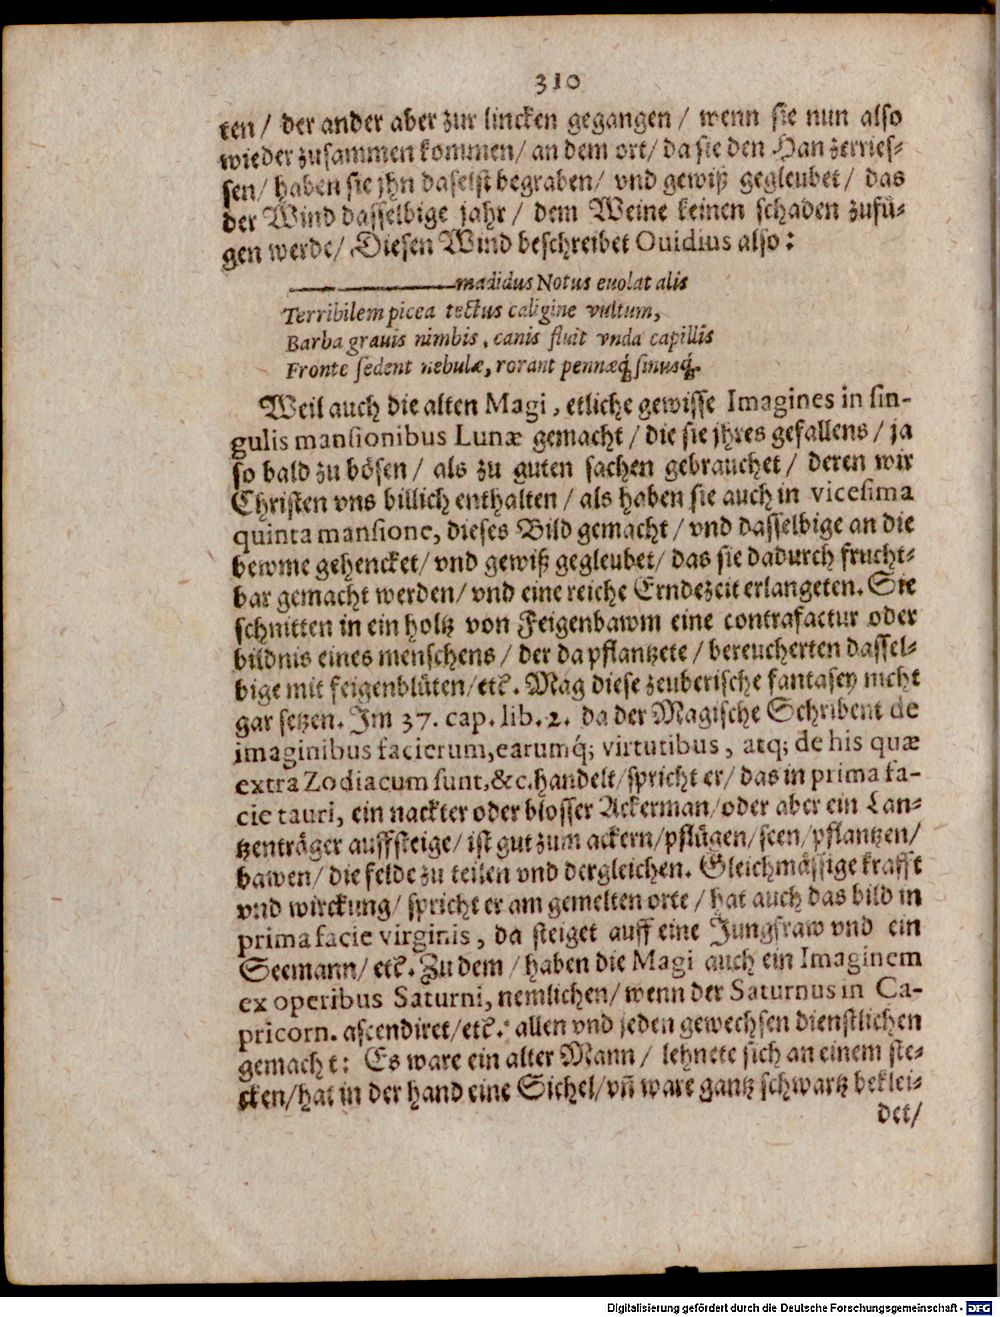 310
ten / der ander aber zur lincken gegangen / wenn sie nun also
wieder zusammen kommen / an dem ort / da sie den Han zerries-
sen / haben sie jhn daselst begraben / vnd gewiß gegleubet / das
der Wind dasselbige jahr / dem Weine keinen schaden zufü-
gen werde / Diesen Wind beschreibet Ouidius also :
——————madidus Notus euolat alis
Terribilem picea tectus caligine vultum,
Barba grauis nimbis, canis fluit vnda capillis
Fronte sedent nebulæ, rorant pennæq́; sinusq́;.
Weil auch die alten Magi, etliche gewisse Imagines in sin-
gulis mansionibus Lunæ gemacht / die sie jhres gefallens / ja
so bald zu bösen / als zu guten sachen gebrauchet / deren wir
Christen vns billich enthalten / als haben sie auch in vicesima
quinta mansione, dieses Bild gemacht / vnd dasselbige an die
bewme gehencket / vnd gewiß gegleubet / das sie dadurch frucht-
bar gemacht werden / vnd eine reiche Erndezeit erlangeten. Sie
schnitten in ein holtz von Feigenbawm eine contrafactur oder
bildnis eines menschens / der da pflantzete / bereucherten dassel-
bige mit feigenblüten / etc. Mag diese zeuberische fantasey nicht
gar setzen. Im 37. cap. lib. 2. da der Magische Schribent de
imaginibus facierum, earumq́; virtutibus, atq; de his quæ
extra Zodiacum sunt, &c. handelt / spricht er / das in prima fa-
cie tauri, ein nackter oder blosser Ackerman / oder aber ein Lan-
tzenträger auffsteige / ist gut zum ackern / pflügen / seen / pflantzen /
bawen / die felde zu teilen vnd dergleichen. Gleichmässige krafft
vnd wirckung / spricht er am gemelten orte / hat auch das bild in
prima facie virginis, da steiget auff eine Jungfraw vnd ein
Seemann / etc. Zu dem / haben die Magi auch ein Imaginem
ex operibus Saturni, nemlichen / wenn der Saturnus in Ca-
pricorn. ascendiret / etc. allen vnd jeden gewechsen dienstlichen
gemacht : Es ware ein alter Mann / lehnete sich an einem ste-
cken / hat in der hand eine Sichel / vñ ware gantz schwartz beklei-
det /
Digitalisierung gefördert durch die Deutsche Forschungsgemeinschaft - DFG